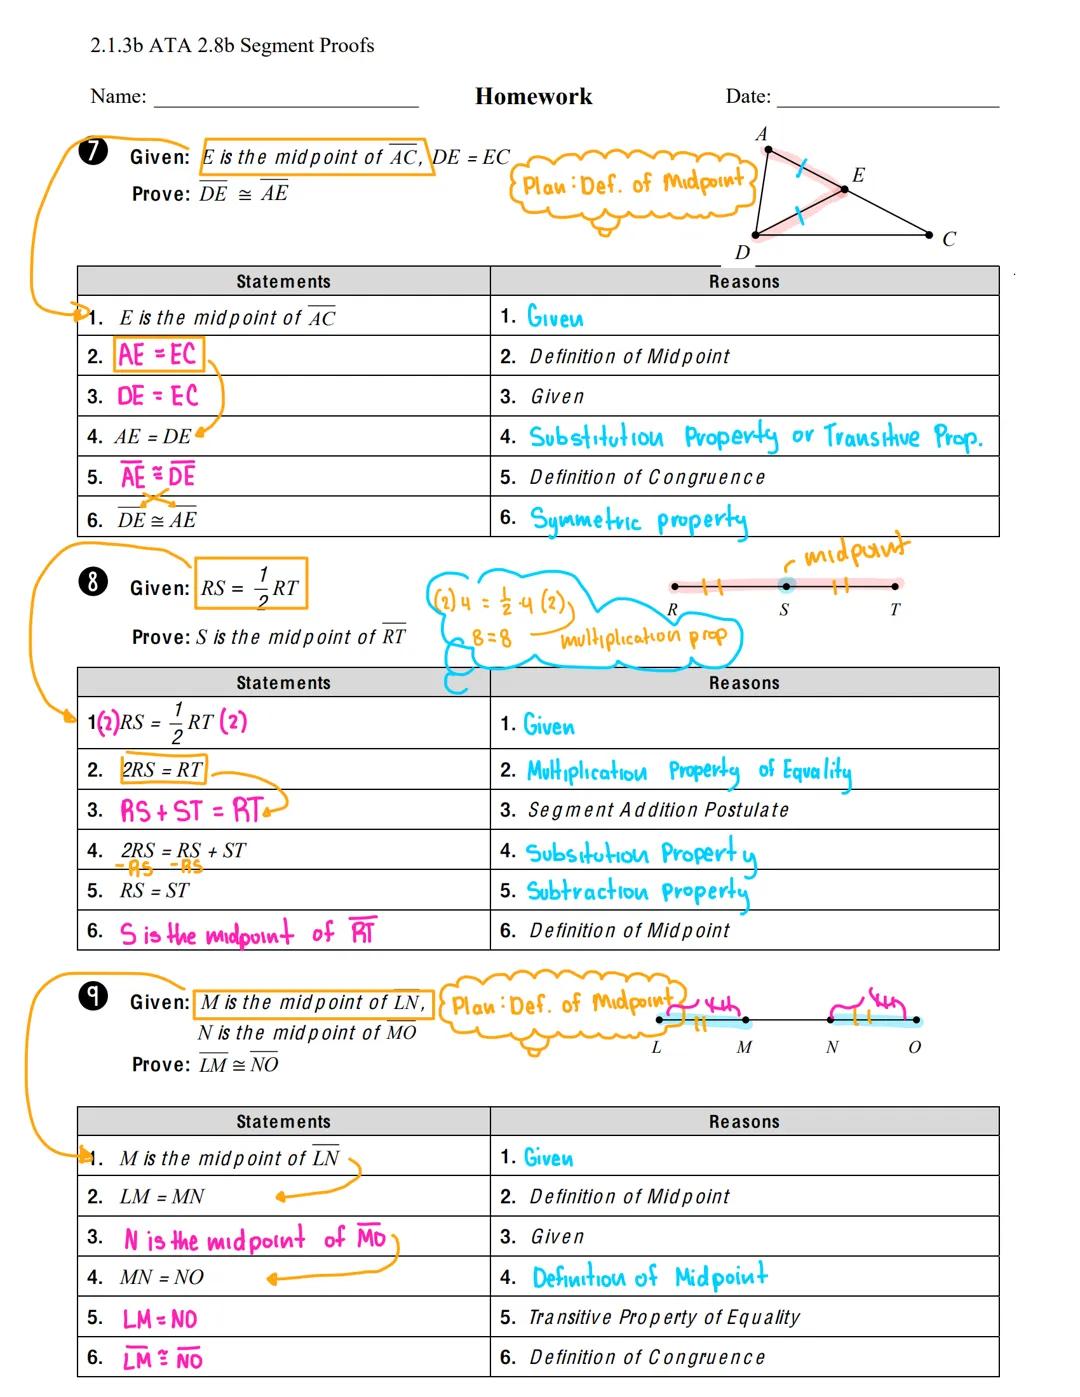 2.1.3b ATA 2.8b Segment Proofs
Name: Homework Date:
7 Given: E is the midpoint of AC, DE = EC
Prove: DE ≅ AE
Plan: Def. of Midpoint
A
E
D
C
Statements Reasons
1. E is the midpoint of AC 1. Given
2. AE = EC 2. Definition of Midpoint
3. DE = EC 3. Given
4. AE = DE 4. Substitution Property or Transitive Prop.
5. AE ≅ DE 5. Definition of Congruence
6. DE ≅ AE 6. Symmetric property
8 Given: RS = 1/2 RT
Prove: S is the midpoint of RT
(2) 4 = 1/2 · 4 (2)
8 = 8 multiplication prop
midpoint
R S T
Statements Reasons
1. (2) RS = 1/2 RT (2) 1. Given
2. 2RS = RT 2. Multiplication Property of Equality
3. RS + ST = RT 3. Segment Addition Postulate
4. 2RS = RS + ST 4. Subsitution Property
-RS -RS
5. RS = ST 5. Subtraction Property
6. S is the midpoint of RT 6. Definition of Midpoint
9 Given: M is the midpoint of LN,
N is the midpoint of MO
Prove: LM ≅ NO
Plan: Def. of Midpoint
L M N O
Statements Reasons
1. M is the midpoint of LN 1. Given
2. LM = MN 2. Definition of Midpoint
3. N is the midpoint of MO 3. Given
4. MN = NO 4. Definition of Midpoint
5. LM = NO 5. Transitive Property of Equality
6. LM ≅ NO 6. Definition of Congruence